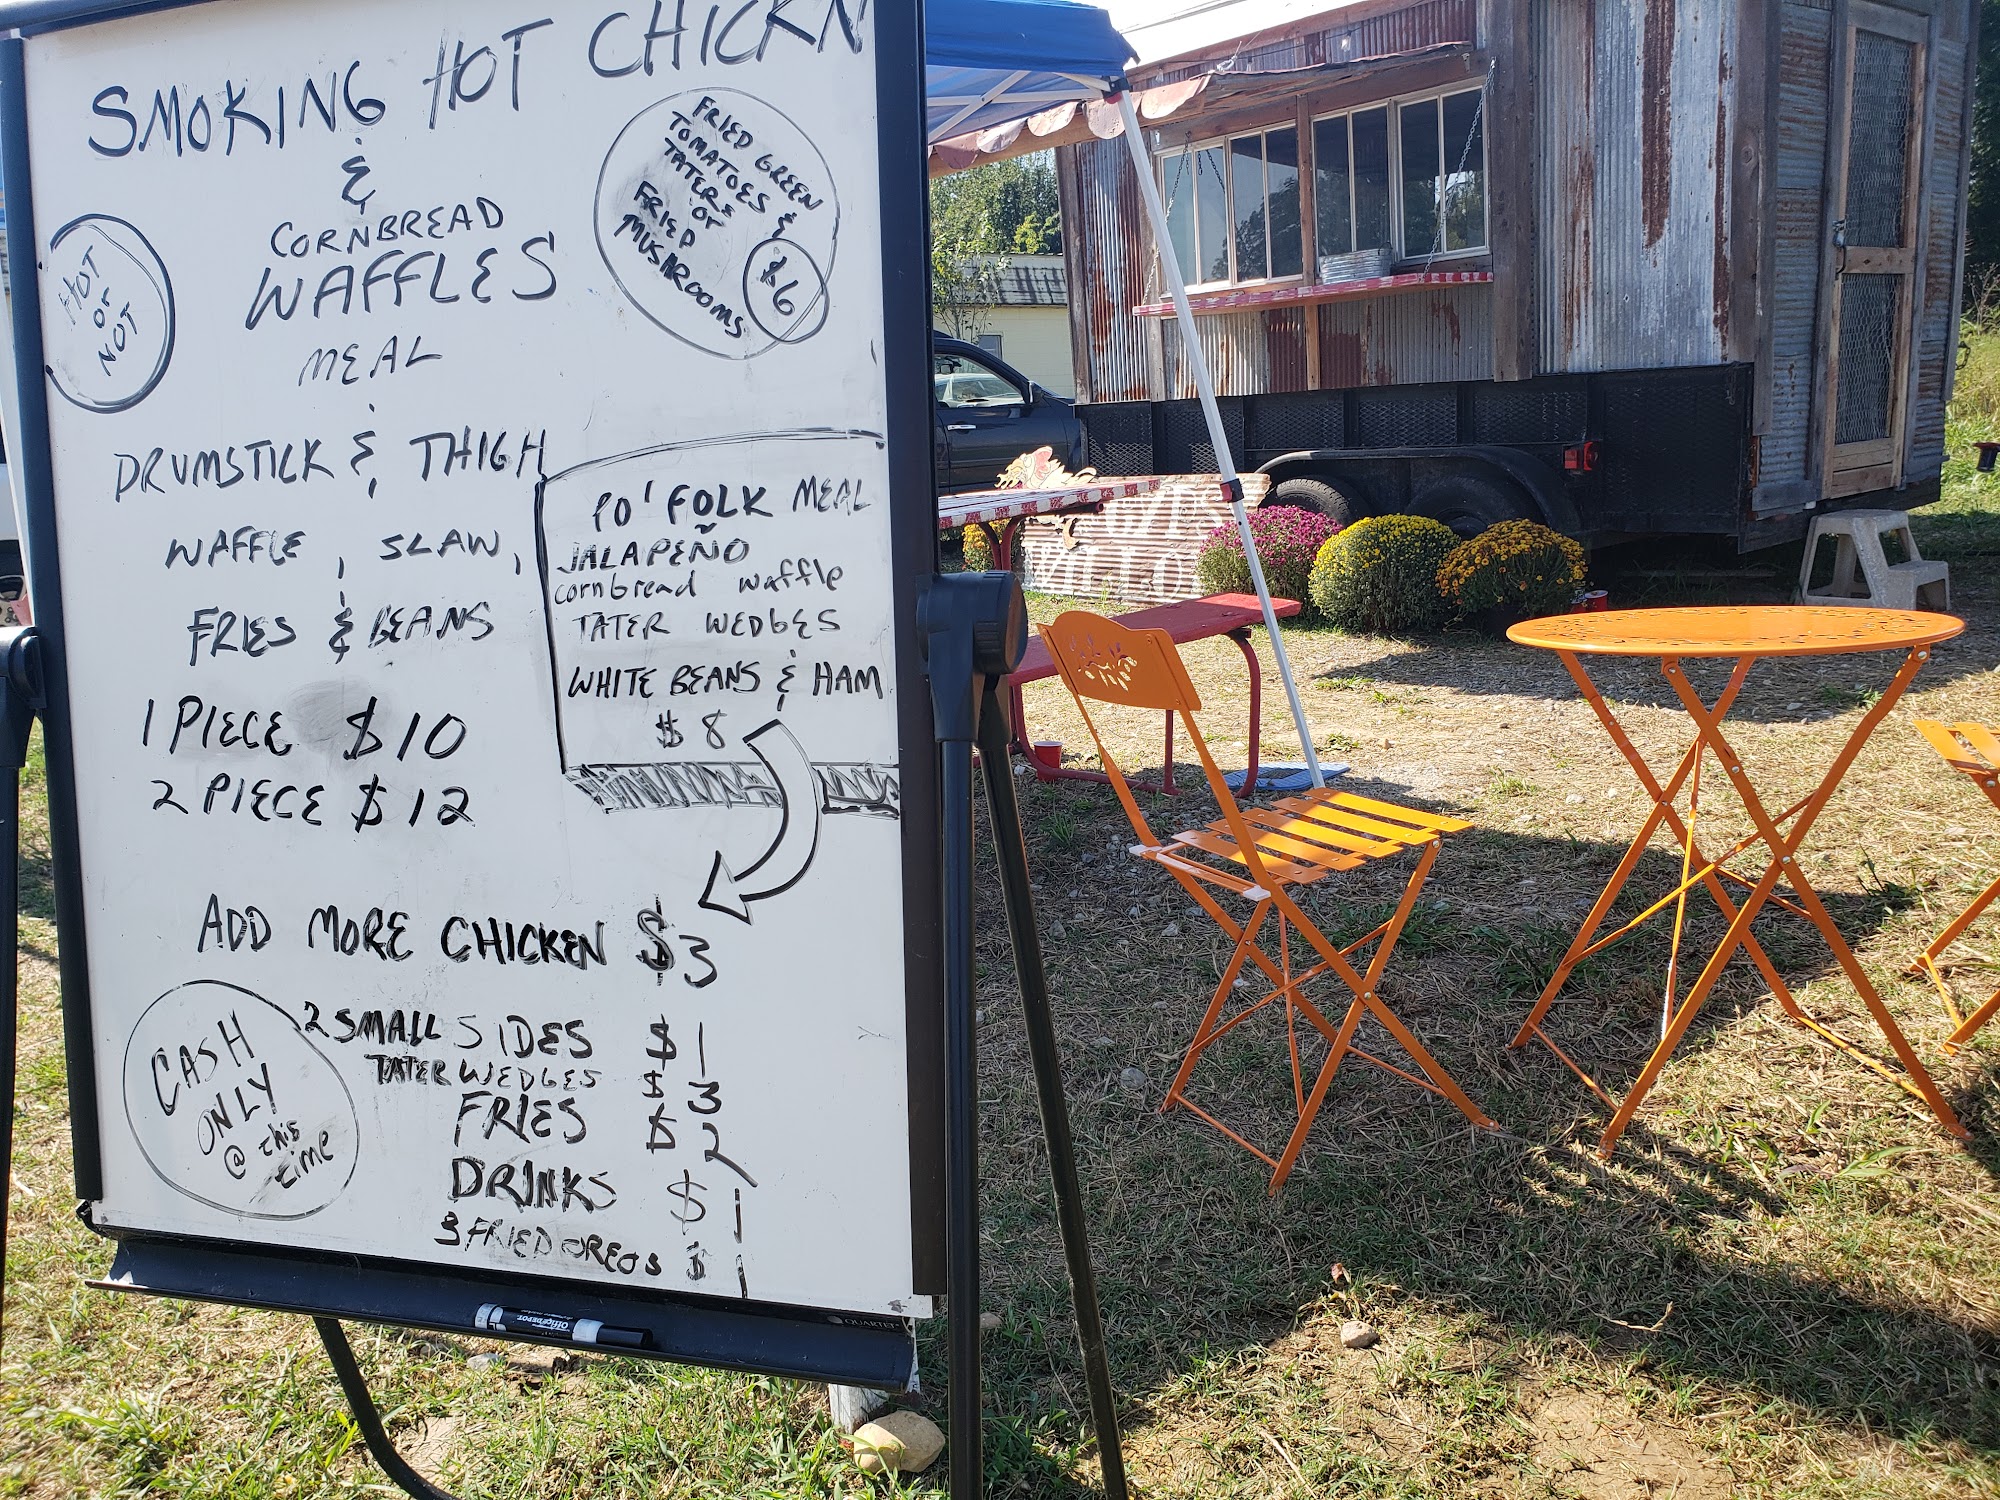 SMOKING HOT CHICKN
&
CORNBREAD
WAFFLES
MEAL
HOT
or
NOT
FRIED GREEN
TOMATOES &
TATERS
or
FRIED
MUSHROOMS
$6
DRUMSTICK & THIGH
WAFFLE, SLAW,
FRIES & BEANS
1 PIECE $10
2 PIECE $12
PO' FOLK MEAL
JALAPEÑO
cornbread waffle
TATER WEDGES
WHITE BEANS & HAM
$8
ADD MORE CHICKEN $3
2 SMALL SIDES $1
TATER WEDGES $3
FRIES $2
DRINKS $1
3 FRIED OREOS $1
CASH
ONLY
@ this
time
Office DEPOT
QUARTET